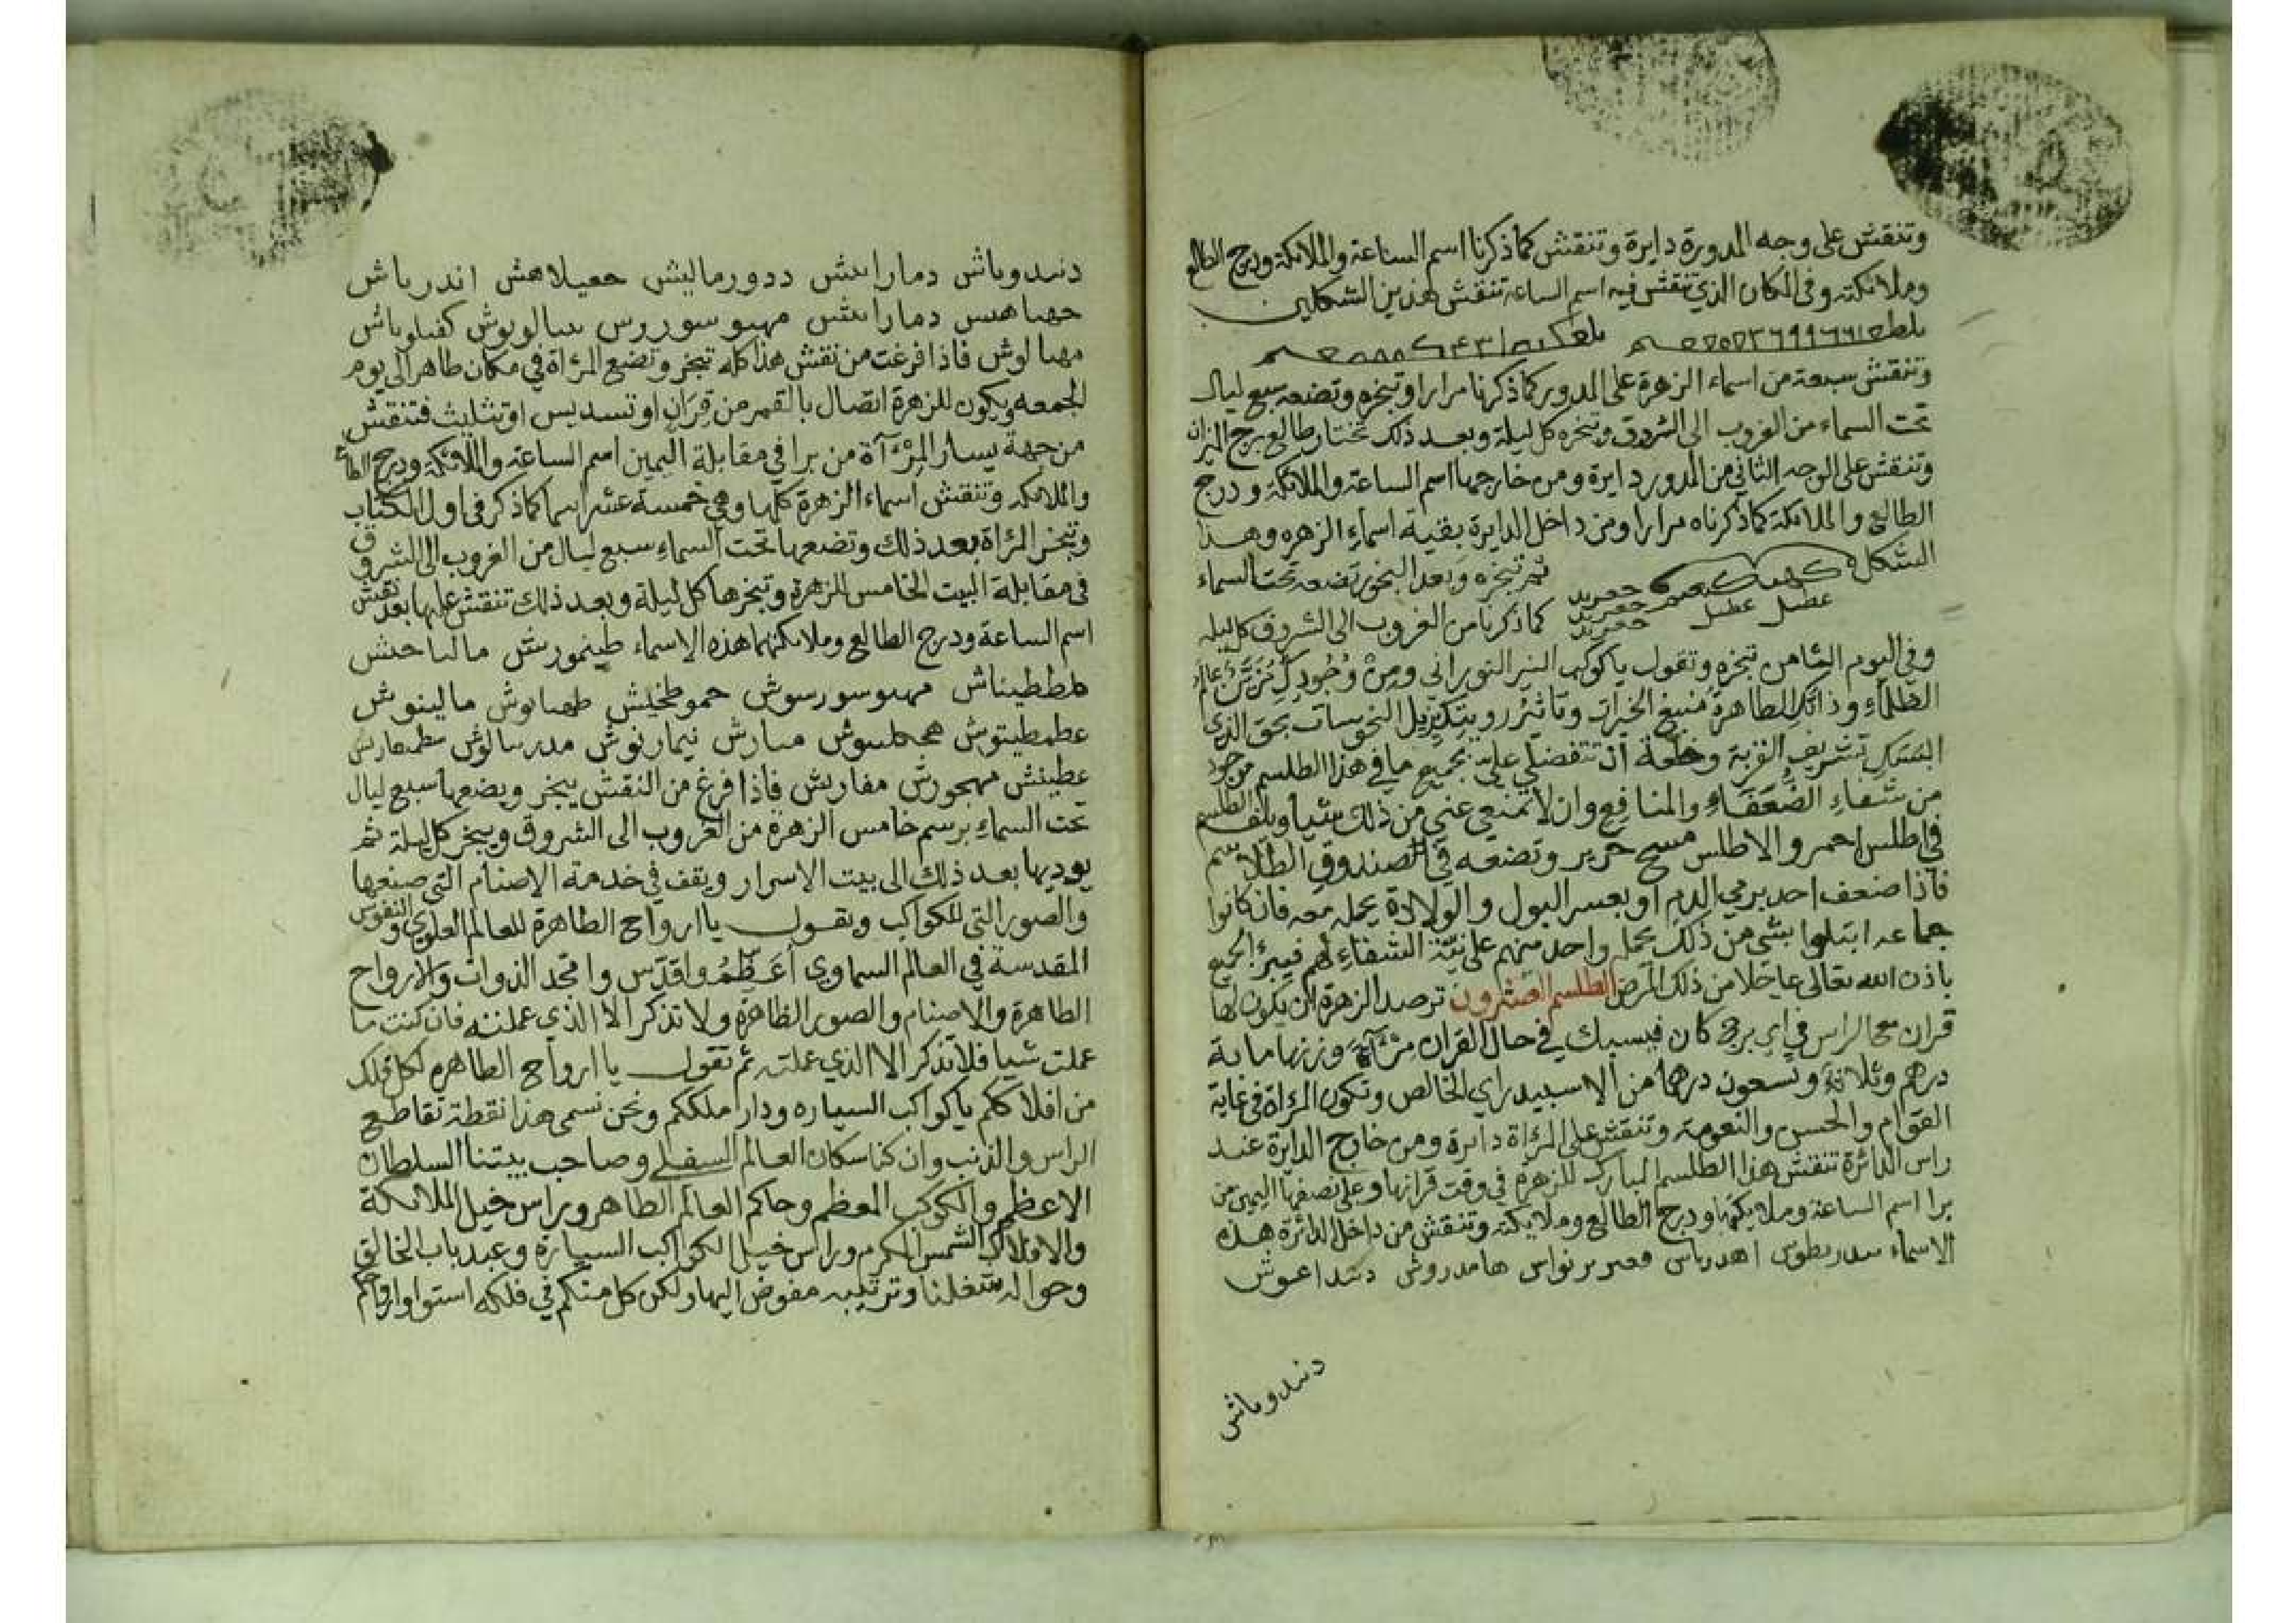 وتنقش على وجه المدورة دايرة وتنقش كما ذكرنا اسم الساعة والملائكة ودرج الطالع
وملائكته وفي المكان الذي تنقش فيه اسم الساعة تنقش هذين الشكلين
وتنقش سبعة من اسماء الزهرة على المدور كما ذكرنا مرارا وتبخره وتضعه سبع ليال
تحت السماء من الغروب الى الشروق وتبخره كل ليلة وبعد ذلك تختار طالع برج الميزان
وتنقش على الوجه الثاني من المدور دايرة ومن خارجها اسم الساعة والملائكة ودرج
الطالع والملائكة كما ذكرناه مرارا ومن داخل الدايرة بقية اسماء الزهره وهذا
الشكل ثم تبخره وبعد البخور تضعه تحت السماء
عطيل عطيل كما ذكرنا من الغروب الى الشروق كل ليله
وفي اليوم الثامن تبخره وتقول يا كوكب النير النوراني ومن وجودك تزين عالم
الظلماء وذاتك الطاهرة منبع الخيرات وتاثير روبيتك يزيل النحوسات بحق الذي
البسك تشريف القربة وخلعة ان تتفضلي علي بجميع ما في هذا الطلسم موجود
من شفاء الضعفاء والمنافع وان لا تمنعي عني من ذلك شيا ويلف الطلسم
في اطلس احمر والاطلس مسح حرير وتضعه في الصندوق الطلاسم
فاذا ضعف احد برمي الدم او بعسر البول والولادة يحمله معه فان كانوا
جماعه ابتلوا بشي من ذلك يحمل واحد منهم على نية الشفاء لهم فيبرؤ الجميع
باذن الله تعالى عاجلا من ذلك المرض الطلسم العشرون ترصد الزهرة ان يكون لها
قران مع الراس في اي برج كان فيسبك في حال القران مرآة وزنها ماية
درهم وثلاثة وتسعون درهما من الاسبيدراي الخالص وتكون المرءاة في غاية
القوام والحسن والنعومة وتنقش على المرءاة دايرة ومن خارج الدايرة عند
راس الدائرة تنقش هذا الطلسم المبارك للزهرة في وقت قرانها وعلى نصفها اليمين من
برا اسم الساعة وملايكتها ودرج الطالع وملايكته وتنقش من داخل الدائرة هذه
الاسماء سدربطوس اهدرباس هامدروش دنداعوش
دنددوباش
دنددوباش دماراىىش ددورماليش حعيلاهش اندرباش
حهىاهىس دماراىىش مهىو سوروس ىىالوىوش كفىلوباش
مهىالوش فاذا فرغت من نقش هذا كله تبخر وتضع المرءاة في مكان طاهر الى يوم
الجمعه ويكون للزهرة اتصال بالقمر من قران او تسديس او تثليث فتنقش
من جهة يسار المرءاة من برا في مقابلة اليمين اسم الساعة والملائكة ودرج الطالع
والملائكه وتنقش اسماء الزهرة كلها وهي خمسة عشر اسما كما ذكر في اول الكتاب
وتبخر المرءاة بعد ذلك وتضعها تحت السماء سبع ليال من الغروب الى الشروق
في مقابلة البيت الخامس للزهرة وتبخرها كل ليلة وبعد ذلك تنقش عليها بعد نقش
اسم الساعة ودرج الطالع وملائكتهما هذه الاسماء طينمورش مالىاحىش
طططيناش مهىوسورسوش حموطخليش طهىانوش مالينوش
عطمطيتوش مىارش نيمارنوش مدرسالوش
عطينش مهجورش مفاريش فاذا فرغ من النقش يبخر ويضعها سبع ليال
تحت السماء برسم خامس الزهرة من الغروب الى الشروق ويبخر كل ليلة ثم
يوديها بعد ذلك الى بيت الاسرار ويقف في خدمة الاصنام التي صنعها
والصور التي للكواكب وتقول يا ارواح الطاهرة للعالم العلوي والنفوس
المقدسة في العالم السماوي اعظم واقدس وامجد الذوات والارواح
الطاهرة والاصنام والصور الظاهرة ولا تذكر الا الذي عملته فان كنت ما
عملت شيا فلا تذكر الا الذي عملته ثم تقول يا ارواح الطاهره لكل فلك
من افلاككم يا كواكب السياره ودار ملككم ونحن نسمى هذا نقطة تقاطع
الراس والذنب وان كنا سكان العالم السفلي وصاحب بيتنا السلطان
الاعظم والكوكب المعظم وحاكم العالم الطاهر وراس خيل الملائكة
والافلاك الشمس المكرم وراس خيل الكواكب السيارة وعبد باب الخالق
وحوالة شغلنا وترتيبه مفوض اليها ولكن كل منكم في فلكه استوا وارواحكم